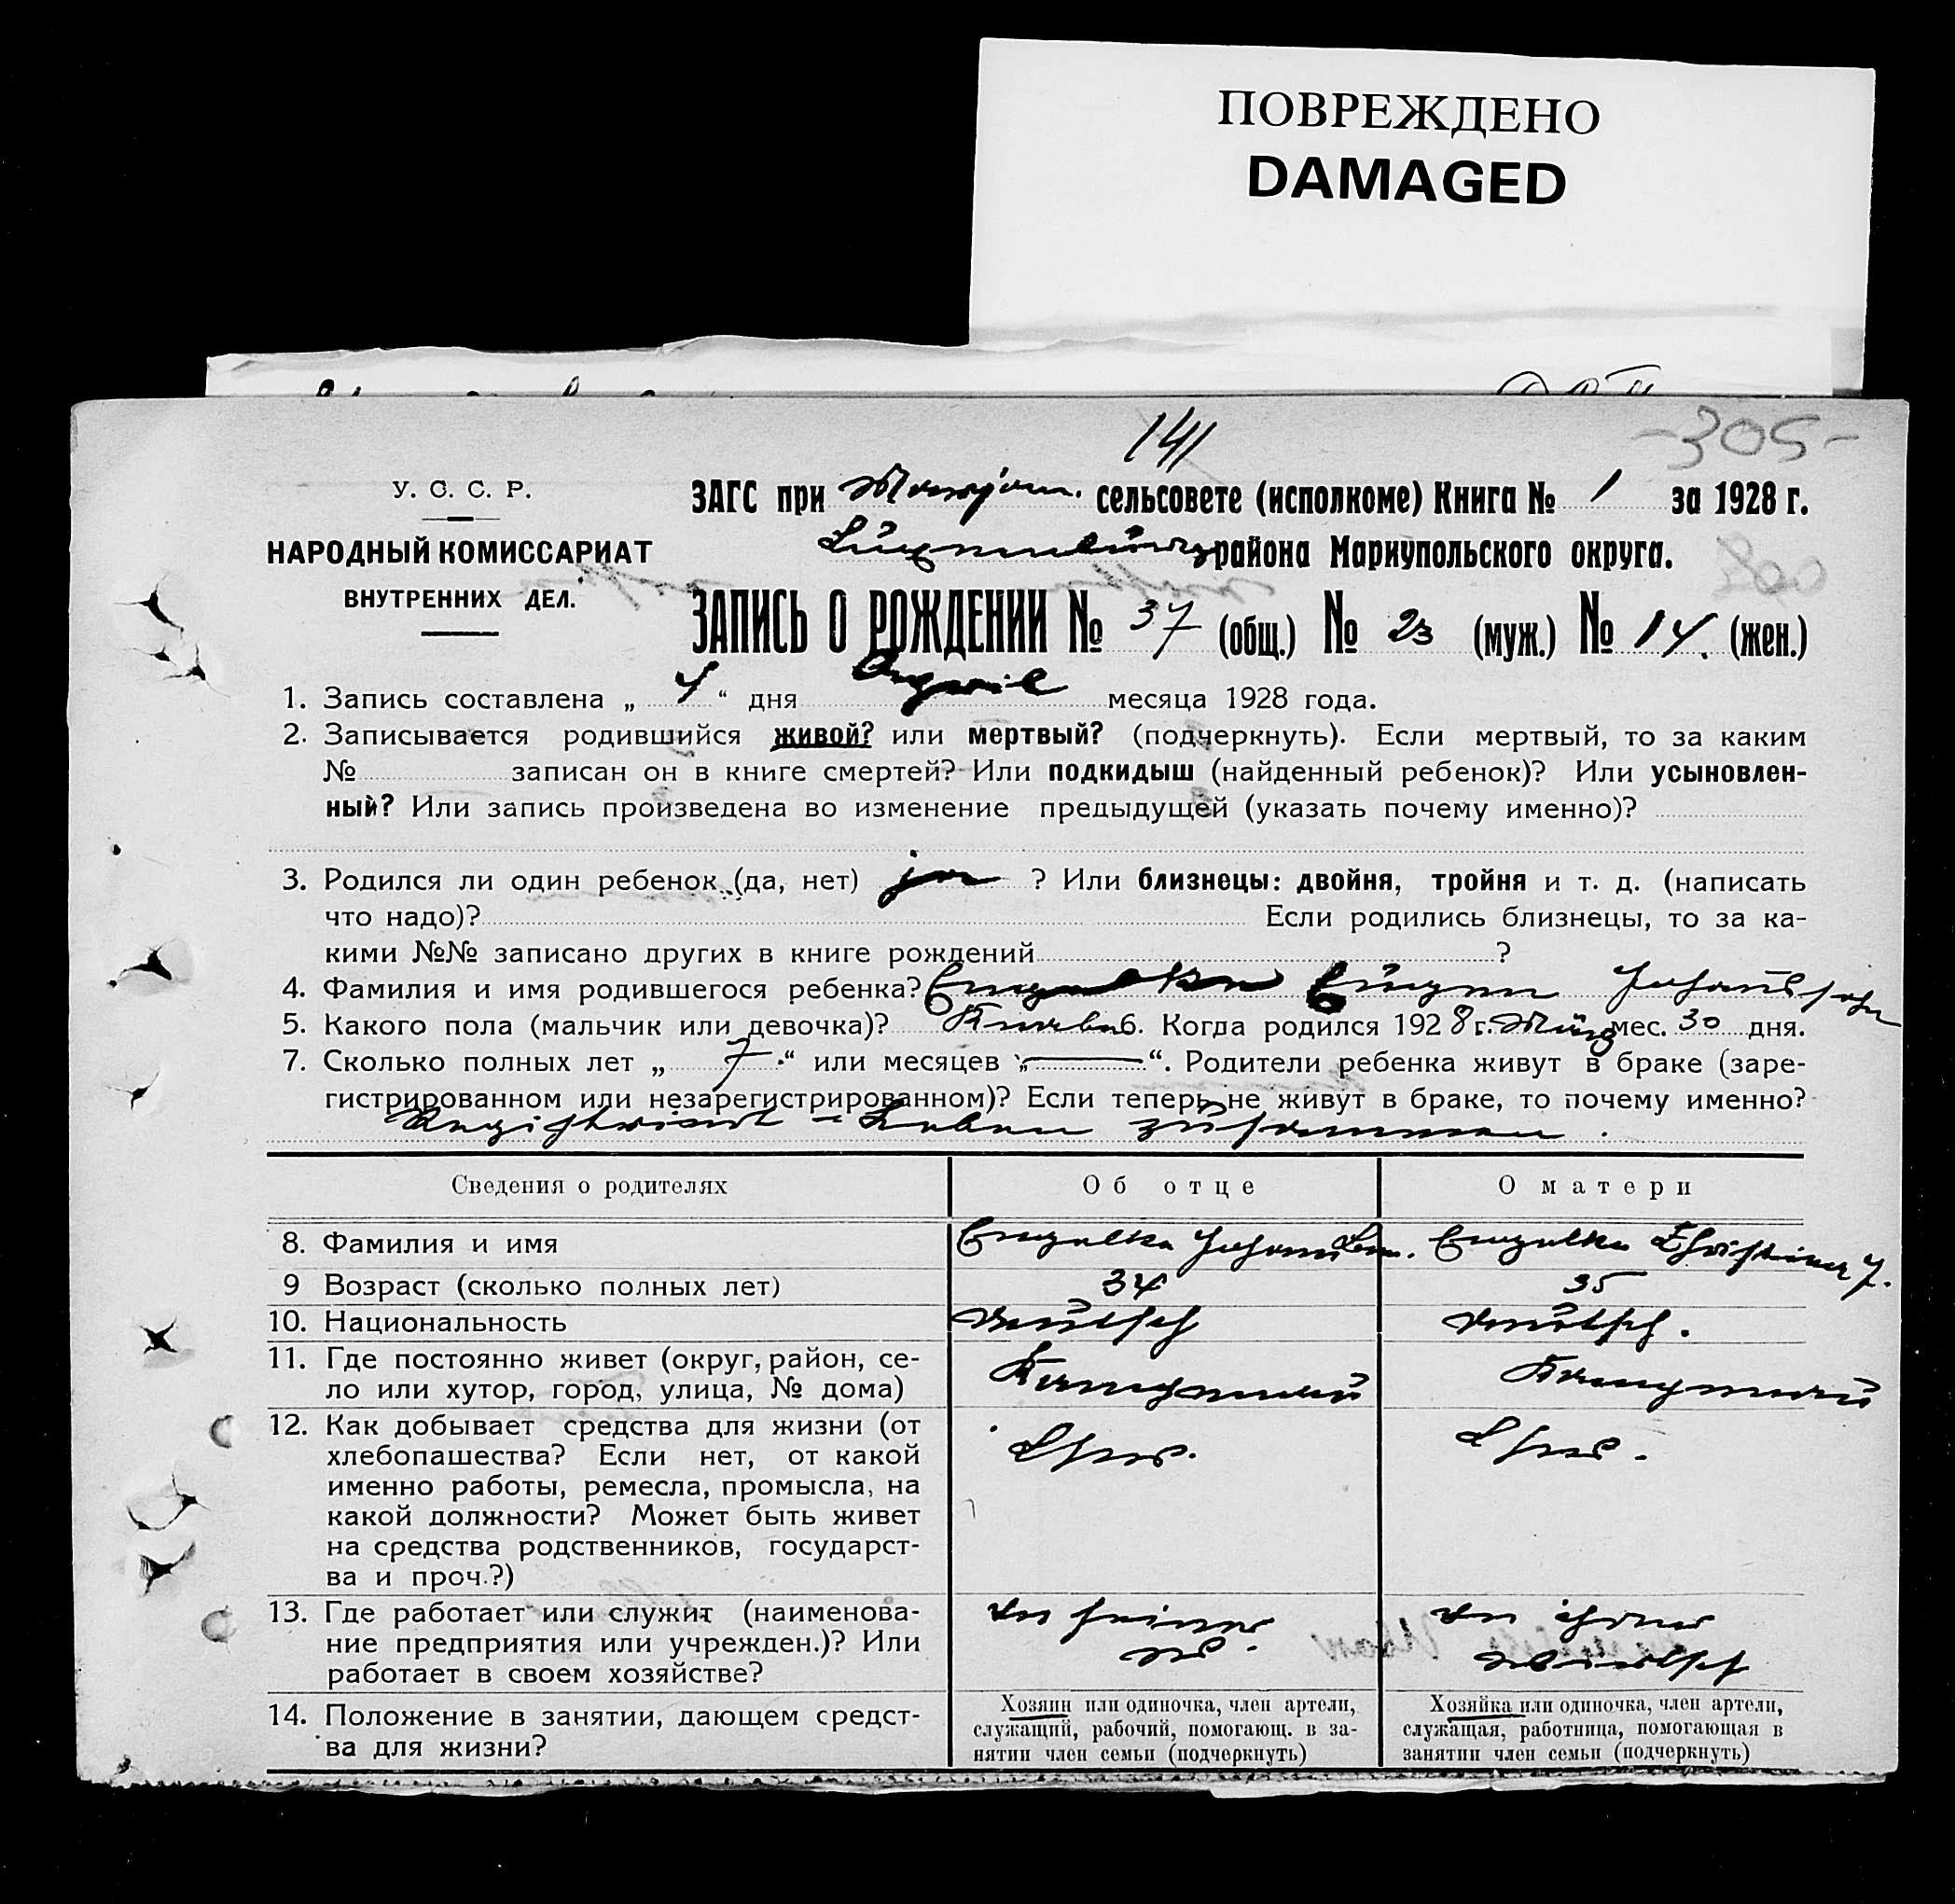 ПОВРЕЖДЕНО
DAMAGED
141
-305-
У. С. С. Р.
НАРОДНЫЙ КОМИССАРИАТ
ВНУТРЕННИХ ДЕЛ.
ЗАГС при сельсовете (исполкоме) Книга № 1 за 1928 г.
района Мариупольского округа.
ЗАПИСЬ О РОЖДЕНИИ № 37 (общ.) № 23 (муж.) № 14. (жен.)
1. Запись составлена „ 4 “ дня April месяца 1928 года.
2. Записывается родившийся живой? или мертвый? (подчеркнуть). Если мертвый, то за каким
№ записан он в книге смертей? Или подкидыш (найденный ребенок)? Или усыновлен-
ный? Или запись произведена во изменение предыдущей (указать почему именно)?
3. Родился ли один ребенок (да, нет) ja ? Или близнецы: двойня, тройня и т. д. (написать
что надо)? Если родились близнецы, то за ка-
кими №№ записано других в книге рождений ?
4. Фамилия и имя родившегося ребенка? Eugen
5. Какого пола (мальчик или девочка)? Knabe 6. Когда родился 1928 г. März мес. 30 дня.
7. Сколько полных лет „ 7 “ или месяцев „ “. Родители ребенка живут в браке (заре-
гистрированном или незарегистрированном)? Если теперь не живут в браке, то почему именно?
Registriert - Leben zusammen.
Сведения о родителях Об отце О матери
8. Фамилия и имя
9 Возраст (сколько полных лет) 34 35
10. Национальность Deutsch Deutsch.
11. Где постоянно живет (округ, район, се-
ло или хутор, город, улица, № дома)
12. Как добывает средства для жизни (от
хлебопашества? Если нет, от какой
именно работы, ремесла, промысла, на
какой должности? Может быть живет
на средства родственников, государст-
ва и проч.?)
13. Где работает или служит (наименова-
ние предприятия или учрежден.)? Или
работает в своем хозяйстве?
In seiner
W.
In ihrer
Wirtsch
14. Положение в занятии, дающем средст-
ва для жизни?
Хозяин или одиночка, член артели,
служащий, рабочий, помогающ. в за-
нятии член семьи (подчеркнуть)
Хозяйка или одиночка, член артели,
служащая, работница, помогающая в
занятии член семьи (подчеркнуть)